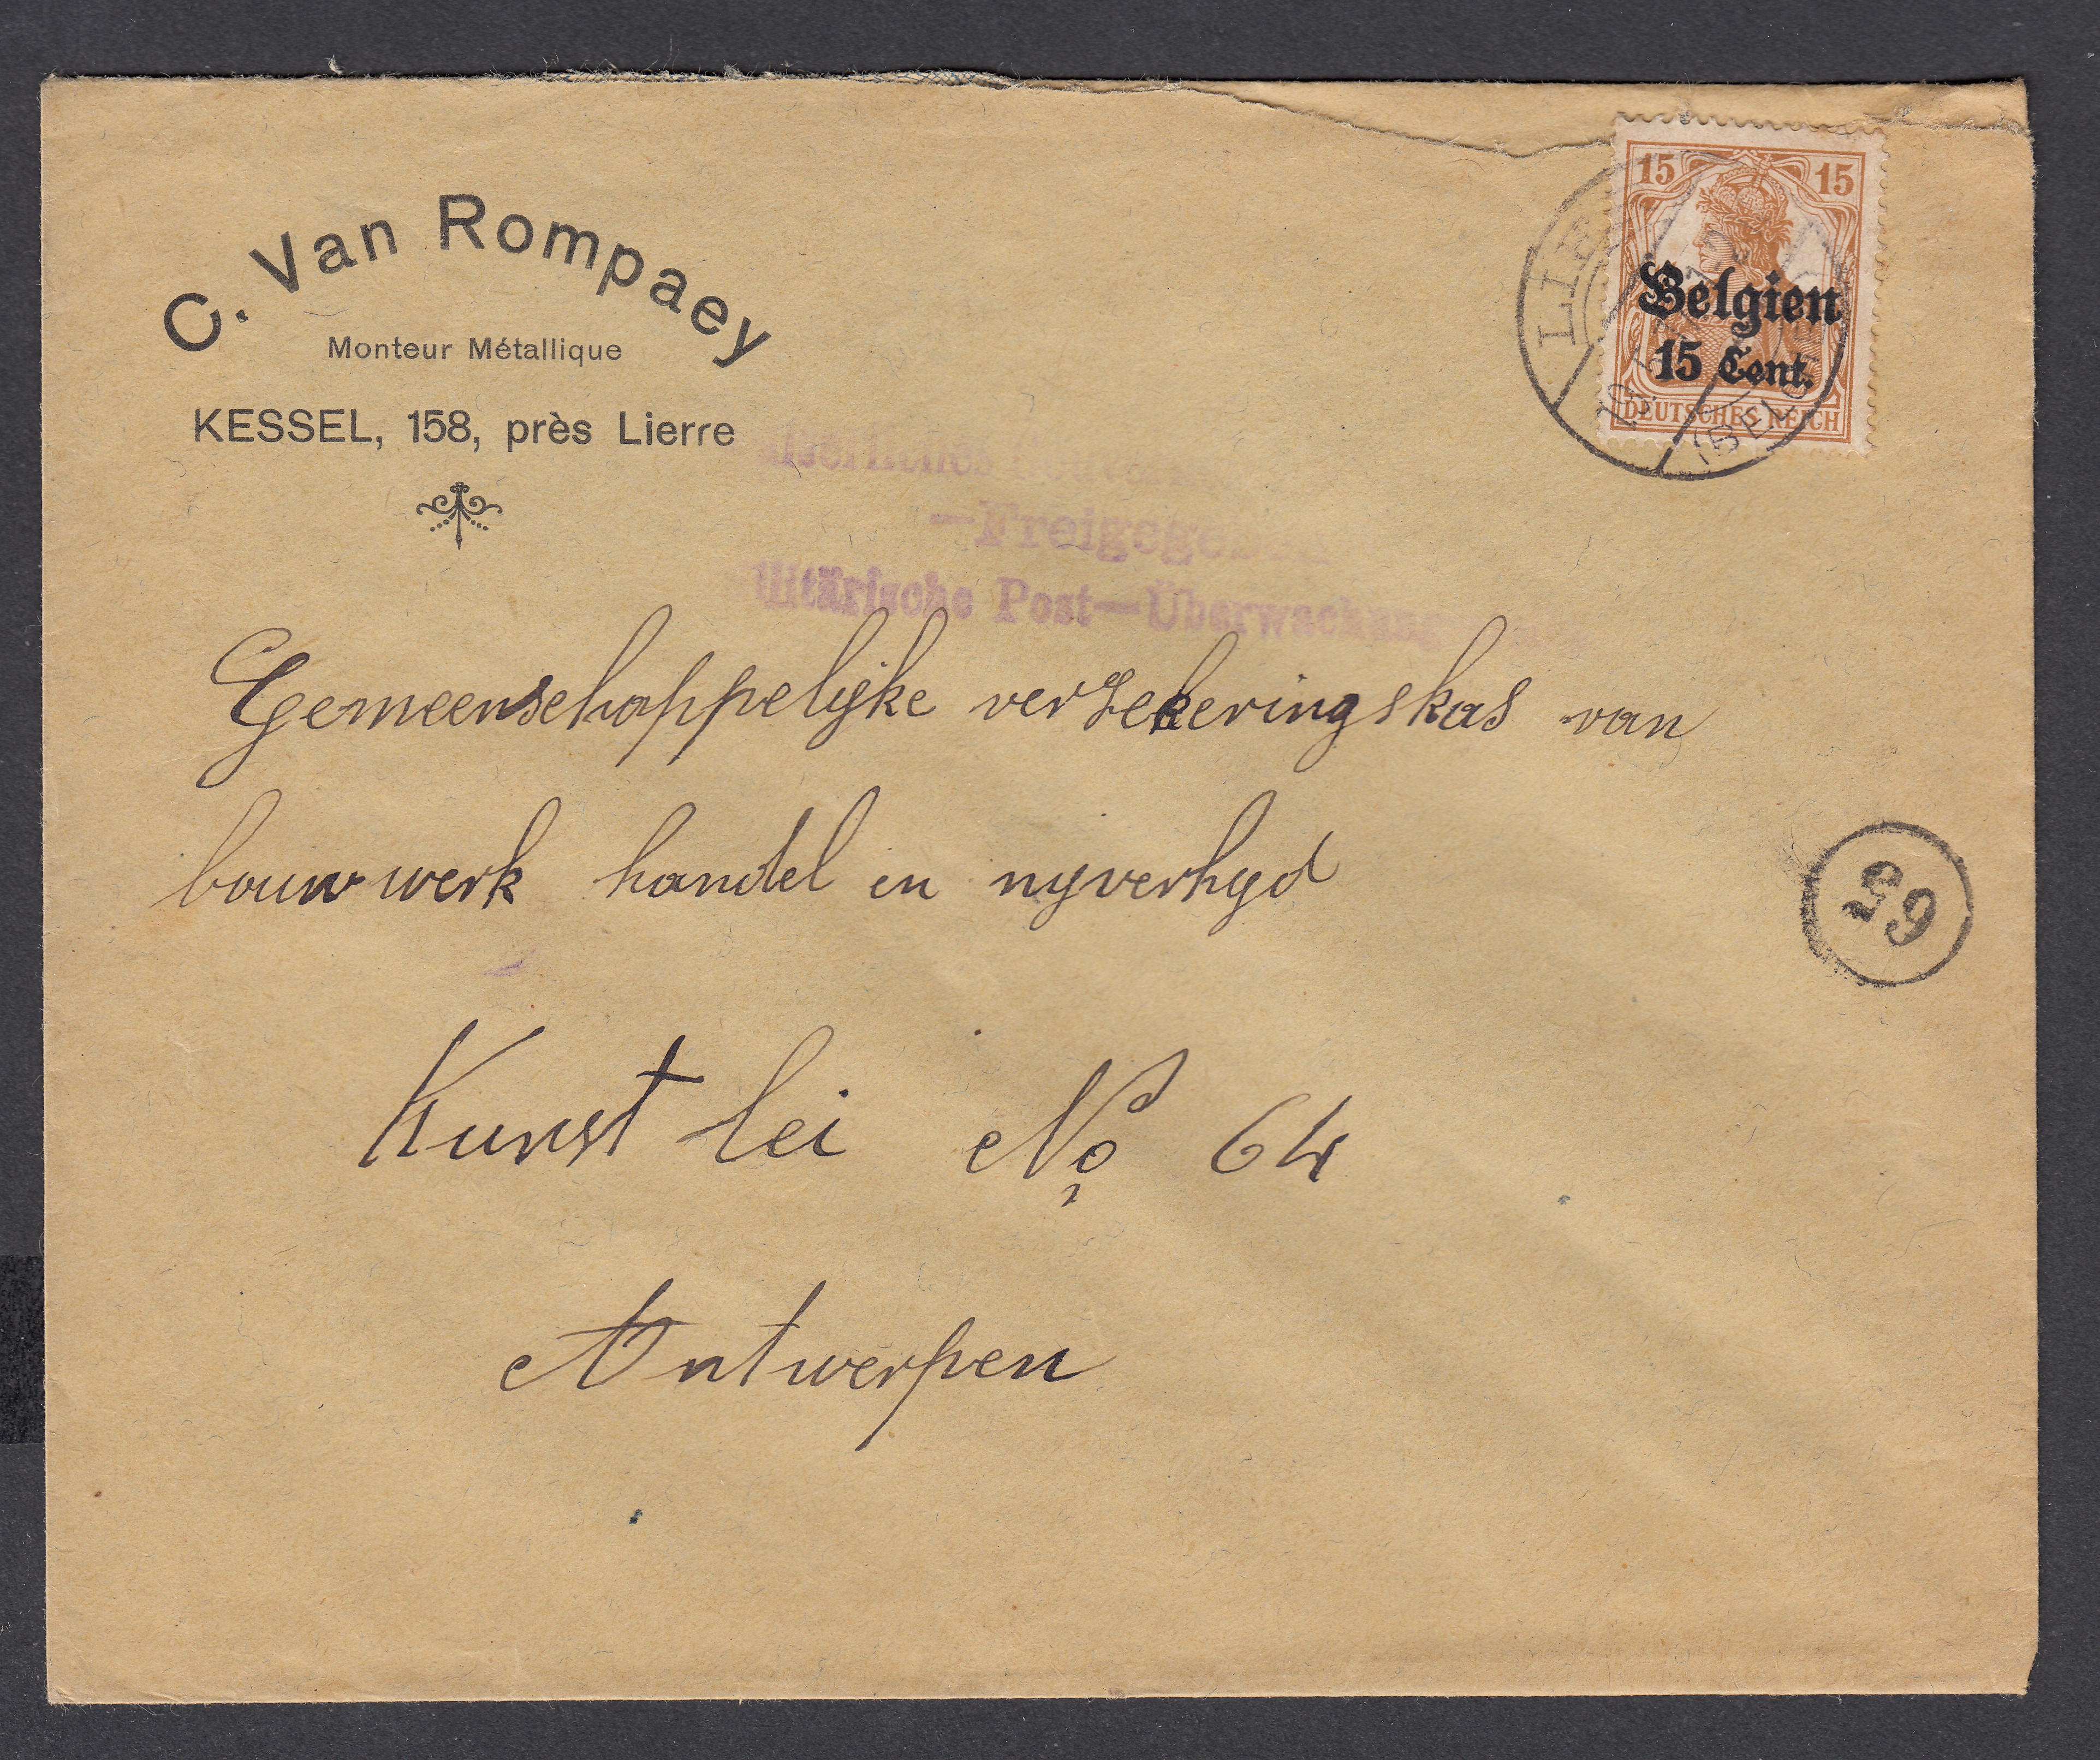 C. Van Rompaey
Monteur Métallique
KESSEL, 158, près Lierre
15 15
Belgien
15 Cent.
DEUTSCHES REICH
LIE
(BELG
—Freigege
litärische Post—Überwachung
Gemeenschappelyke verzekeringskas van
bouwwerk handel en nyverhyd
65
Kunst lei No 64
Antwerpen